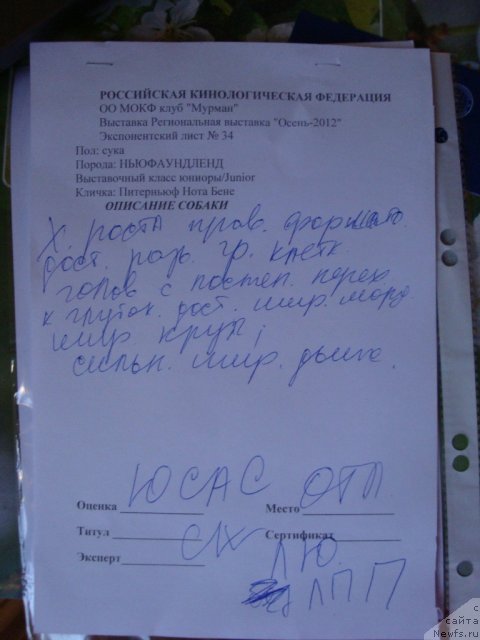 РОССИЙСКАЯ КИНОЛОГИЧЕСКАЯ ФЕДЕРАЦИЯ
ОО МОКФ клуб "Мурман"
Выставка Региональная выставка "Осень-2012"
Экспонентский лист № 34
Пол: сука
Порода: НЬЮФАУНДЛЕНД
Выставочный класс юниоры/Junior
Кличка: Питерньюф Нота Бене
ОПИСАНИЕ СОБАКИ
Х. роста прав. формата
дост. разв. гр. клетк
голов с постеп. перех.
к глуток. дост. шир. морд.
шир. круп,
сильн. шир.
Оценка ЮСАС Место ОТЛ.
Титул СК Сертификат ЛЮ.
Эксперт ЛПП
с
сайта
Newfs.ru